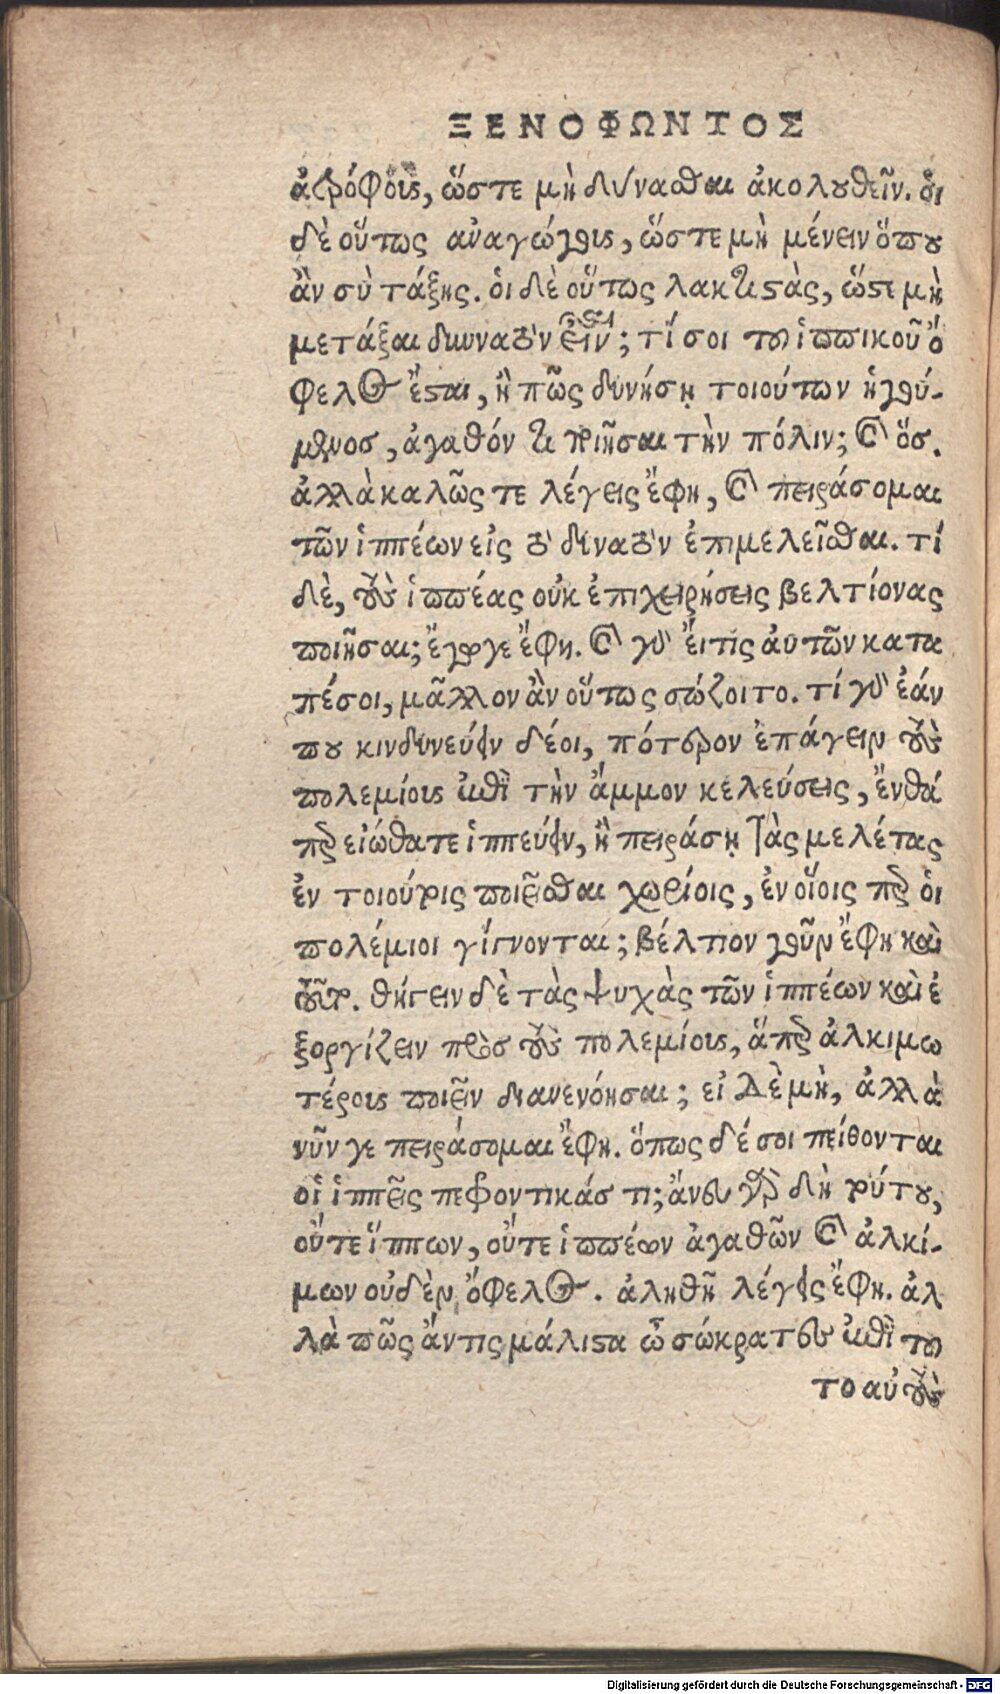 ΞΕΝΟΦΩΝΤΟΣ
ἀτρόφους, ὥστε μὴ δύνασθαι ἀκολουθεῖν. οἱ
δὲ οὕτως ἀναγώγους, ὥστε μὴ μένειν ὅπου
ἂν σὺ τάξης. οἱ δὲ οὕτως λακτιστὰς, ὥστε μὴ
μετάξαι δυνατὸν εἶναι; τί σοι τοῦ ἱππικοῦ ὄ
φελος ἔσται, ἢ πῶς δυνήσῃ τοιούτων ἡγού-
μενος, ἀγαθόν τι ποιῆσαι τὴν πόλιν; καὶ ὅσ.
ἀλλὰ καλῶς τε λέγεις ἔφη, καὶ πειράσομαι
τῶν ἱππέων εἰς τὸ δυνατὸν ἐπιμελεῖσθαι. τί
δὲ, τοὺς ἱππέας οὐκ ἐπιχειρήσεις βελτίονας
ποιῆσαι; ἔγωγε ἔφη. καὶ γὰρ εἴ τις αὐτῶν κατα
πέσοι, μᾶλλον ἂν οὕτως σώζοιτο. τί γὰρ ἐάν
που κινδυνεύειν δέοι, πότερον ἐπάγειν τοὺς
πολεμίους ἐπὶ τὴν ἄμμον κελεύσεις, ἔνθα
περ εἰώθατε ἱππεύειν, ἢ πειράσῃ τὰς μελέτας
ἐν τοιούτοις ποιεῖσθαι χωρίοις, ἐν οἵοις περ οἱ
πολέμιοι γίγνονται; βέλτιον γοῦν ἔφη καὶ
τοῦτο. θήγειν δὲ τὰς ψυχὰς τῶν ἱππέων καὶ ἐ
ξοργίζειν πρὸς τοὺς πολεμίους, ἅπερ ἀλκιμω
τέρους ποιεῖν διανενόησαι; εἰ δὲ μὴ, ἀλλὰ
νῦν γε πειράσομαι ἔφη. ὅπως δέ σοι πείθονται
οἱ ἱππεῖς πεφροντικάς τι; ἄνευ γὰρ δὴ τούτου,
οὔτε ἵππων, οὔτε ἱππέων ἀγαθῶν καὶ ἀλκί-
μων οὐδὲν ὄφελος. ἀληθῆ λέγεις ἔφη. ἀλ
λὰ πῶς ἄν τις μάλιστα ὦ σώκρατες ἐπὶ τοῦ
το αὐτοὺς
Digitalisierung gefördert durch die Deutsche Forschungsgemeinschaft - DFG